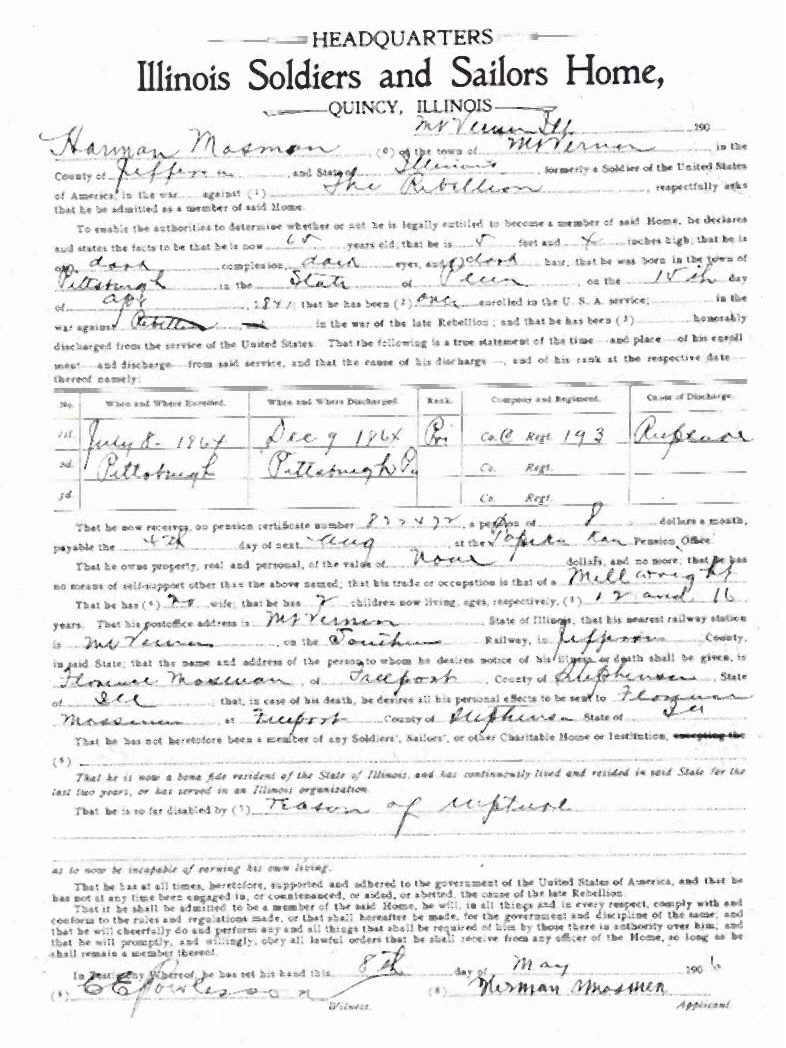 HEADQUARTERS
Illinois Soldiers and Sailors Home,
QUINCY, ILLINOIS
Mt Vernon Ill. 190
Harman Mosman (0) of the town of Mt Vernon in the
County of Jefferson and State of Illinois, formerly a Soldier of the United States
of America, in the war against (1) The Rebellion, respectfully asks
that he be admitted as a member of said Home.
To enable the authorities to determine whether or not he is legally entitled to become a member of said Home, he declares
and states the facts to be that he is now 65 years old; that he is 5 feet and 4 inches high; that he is
of dark complexion, dark eyes, and dark hair, that he was born in the town of
Pittsburgh in the State of Penn on the 15th day
of apr, 1841; that he has been (2) once enrolled in the U. S. A. service; in the
war against Rebellion in the war of the late Rebellion; and that he has been (3) honorably
discharged from the service of the United States. That the following is a true statement of the time and place of his enroll
ment and discharge from said service, and that the cause of his discharge, and of his rank at the respective date
thereof namely:
No. When and Where Enrolled. When and Where Discharged. Rank. Company and Regiment. Cause of Discharge.
1st July 8 - 1864 Dec 9 1864 Pri Co. C Regt. 193 Rupture
2d Pittsburgh Pittsburgh Pa Co. Regt.
3d Co. Regt.
That he now receives, on pension certificate number 872472, a pension of 8 dollars a month,
payable the 4th day of next Aug at the Topeka Kan Pension Office.
That he owns property, real and personal, of the value of None dollars, and no more; that he has
no means of self-support other than the above named; that his trade or occupation is that of a Mill wright
That he has (4) no wife; that he has 2 children now living, ages, respectively, (5) 12 and 16
years. That his postoffice address is Mt Vernon State of Illinois, that his nearest railway station
is Mt Vernon, on the Southern Railway, in Jefferson County,
in said State; that the name and address of the person to whom he desires notice of his illness or death shall be given, is
Florence Mosman of Freeport, County of Stephenson, State
of Ill; that, in case of his death, he desires all his personal effects to be sent to Florence
Mossman at Freeport County of Stephenson State of Ill
That he has not heretofore been a member of any Soldiers', Sailors', or other Charitable Home or Institution, excepting the
(6)
That he is now a bona fide resident of the State of Illinois, and has continuously lived and resided in said State for the
last two years, or has served in an Illinois organization.
That he is so far disabled by (7) reason of rupture
as to now be incapable of earning his own living.
That he has at all times, heretofore, supported and adhered to the government of the United States of America, and that he
has not at any time been engaged in, or countenanced, or aided, or abetted, the cause of the late Rebellion.
That if he shall be admitted to be a member of the said Home, he will, in all things and in every respect, comply with and
conform to the rules and regulations made, or that shall hereafter be made, for the government and discipline of the same; and
that he will cheerfully do and perform any and all things that shall be required of him by those there in authority over him; and
that he will promptly, and willingly, obey all lawful orders that he shall receive from any officer of the Home, so long as he
shall remain a member thereof.
In Testimony Whereof, he has set his hand this 8th day of May 1906
(8) (8) Herman Mosmen
Witness. Applicant.